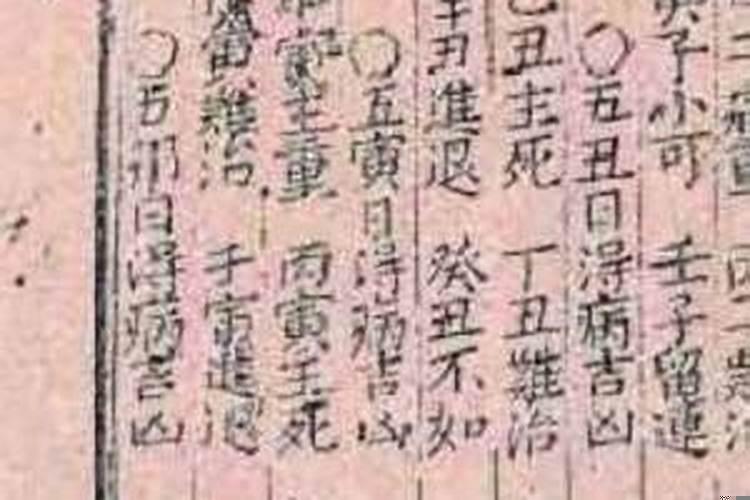 子小可 壬子留連
〇五丑日淂病吉凶
丑主死 丁丑難治
辛丑進退 癸丑不如
〇五寅日淂病吉凶
寅主重 丙寅主死
寅難治 壬寅進退
〇五卯日淂病吉凶